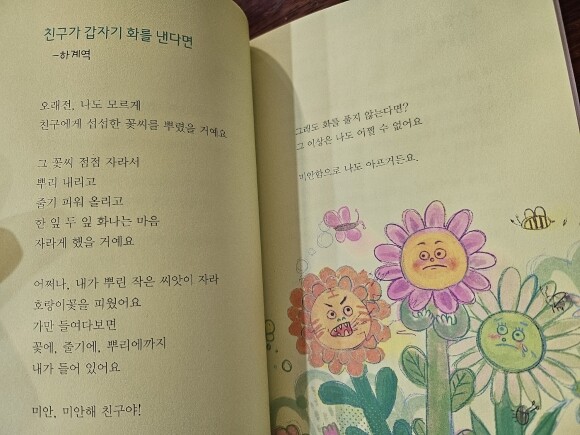 친구가 갑자기 화를 낸다면
-하계역
오래전, 나도 모르게
친구에게 섭섭한 꽃씨를 뿌렸을 거예요
그 꽃씨 점점 자라서
뿌리 내리고
줄기 피워 올리고
한 잎 두 잎 화나는 마음
자라게 했을 거예요
어쩌나, 내가 뿌린 작은 씨앗이 자라
호랑이꽃을 피웠어요
가만 들여다보면
꽃에, 줄기에, 뿌리에까지
내가 들어 있어요
미안, 미안해 친구야!
그래도 화를 풀지 않는다면?
그 이상은 나도 어쩔 수 없어요
미안함으로 나도 아프거든요.